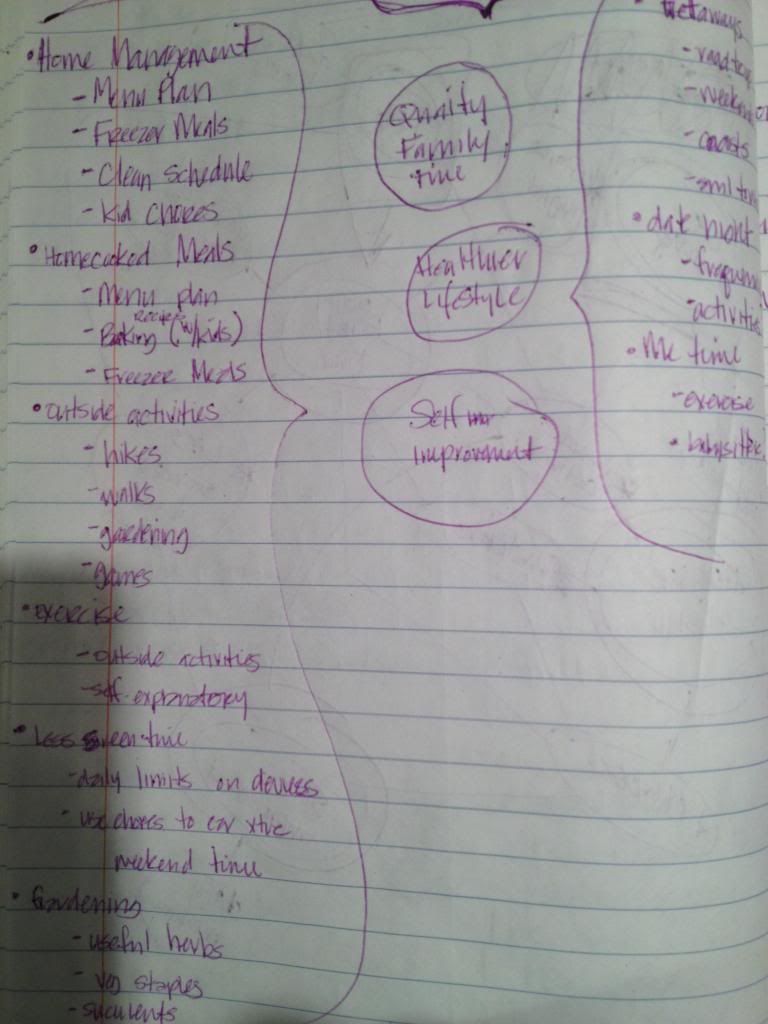 • Home Management
- Menu Plan
- Freezer Meals
- Clean Schedule
- Kid Chores
• Homecooked Meals
- Menu plan
- Baking (w/kids)
- Freezer Meals
• outside activities
- hikes
- walks
- gardening
- games
• exercise
- outside activities
- self-explanatory
• Less screen time
- daily limits on devices
- use chores to
weekend time
• Gardening
- useful herbs
- veg staples
- succulents
Quality
Family
time
Healthier
Lifestyle
Self
improvement
• Getaways
- road
- coasts
• date night
- activities
• Me time
- exercise
• babysitter